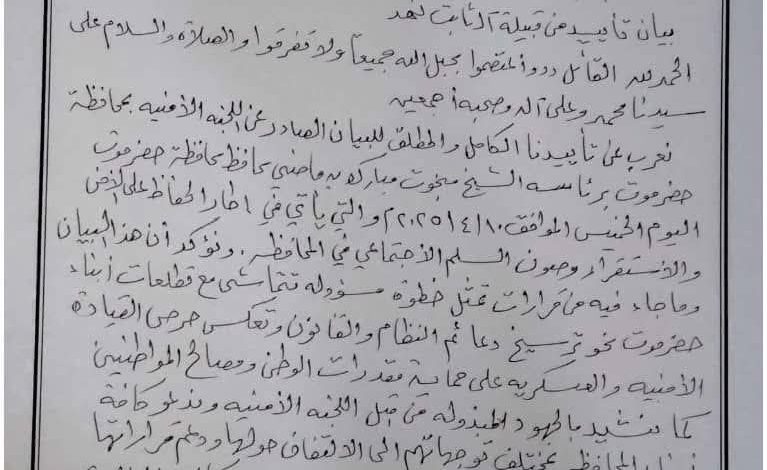 بيان تأييد من قبيلة آل ثابت نهد
الحمدلله القائل ((واعتصموا بحبل الله جميعا ولا تفرقوا والصلاة والسلام على
سيدنا محمد وعلى آله وصحبه أجمعين
نعرب عن تأييدنا الكامل والمطلق للبيان الصادر عن اللجنه الأمنيه بمحافظة
حضرموت برئاسه الشيخ مبخوت مبارك بن ماضي محافظ محافظة حضرموت
اليوم الخميس الموافق ٢٠٢٥/٤/١٠م والتي يأتي في اطار الحفاظ على الأمن
والاستقرار وصون السلم الاجتماعي في المحافظه. ونؤكد أن هذا البيان
وماجاء فيه من قرارات تمثل خطوة مسؤوله تتماشى مع تطلعات أبناء
حضرموت نحو ترسيخ دعائم النظام والقانون وتعكس حرص القيادة
الأمنيه والعسكريه على حماية مقدرات الوطن ومصالح المواطنين
كما نشيد بالجهود المبذوله من قبل اللجنه الأمنيه وندعو كافة
أبناء المحافظه بمختلف توجهاتهم الى الالتفاف حولها ودعم قراراتها